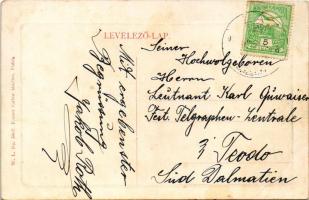 LEVELEZŐ-LAP.
Seiner
Hochwolgeboren
Herrn
Leutnant Karl
Fest. Telegraphen-Zentrale
Teodo
Süd Dalmatien
Mit ergebenster
Begrüssung
Jakob Roth